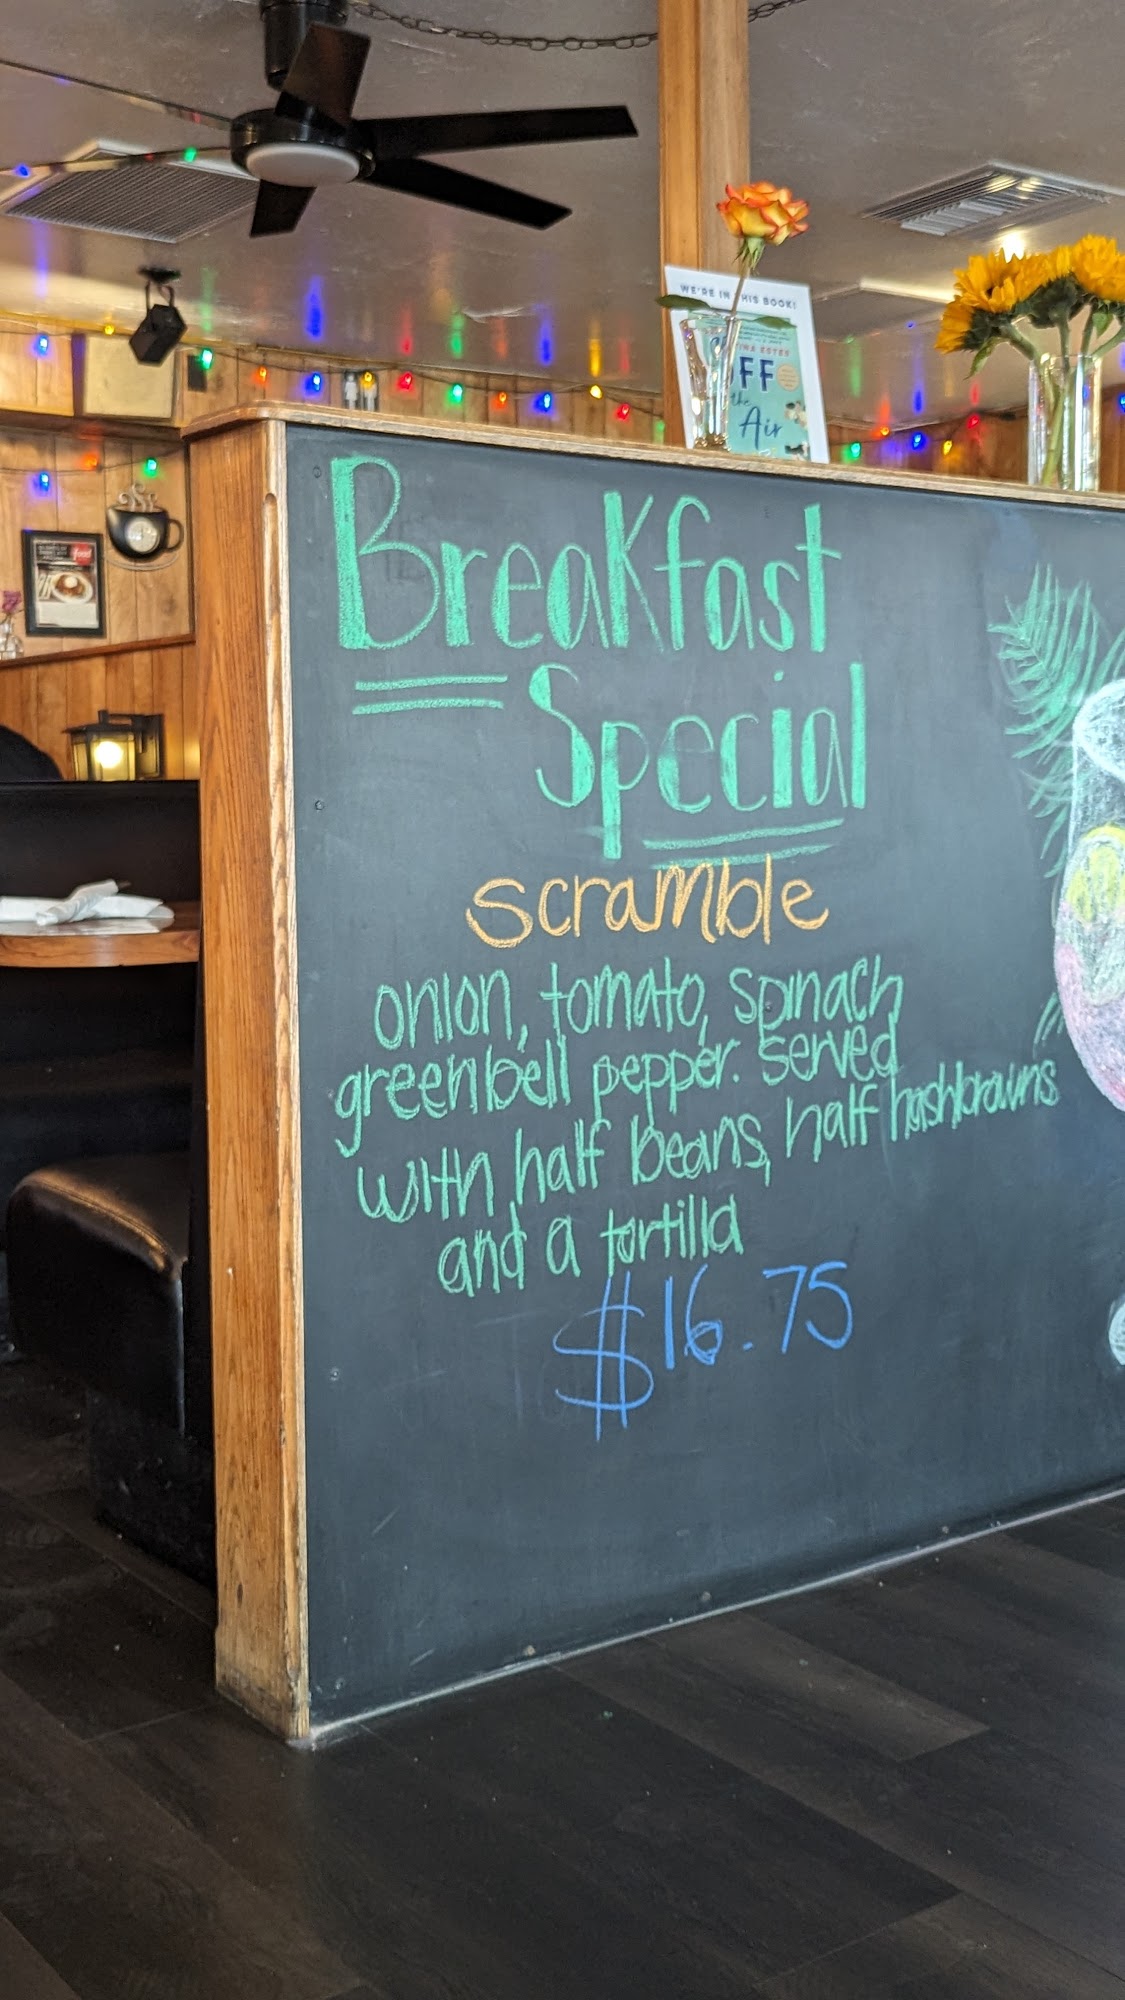 WE'RE IN THIS BOOK!
OFF
the
Air
food
Breakfast
Special
scramble
onion, tomato, spinach
green bell pepper. served
with half beans, half hashbrowns
and a tortilla
$16.75